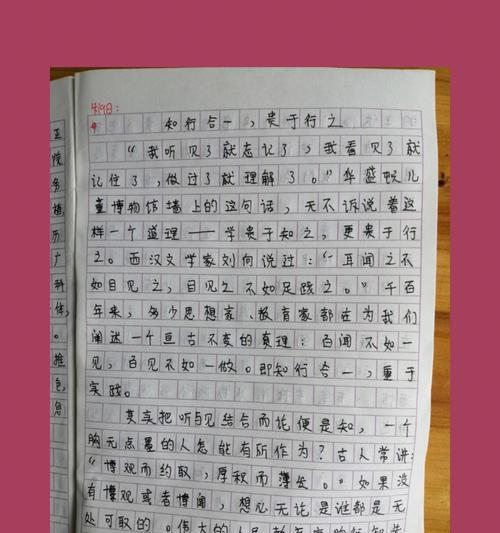 4月9日:
知行合一,贵于行之
“我听见了就忘记了,我看见了就
记住了,做过了就理解了。”华盛顿儿
童博物馆墙上的这句话,无不诉说着这
样一个道理——学贵于知之,更贵于行
之。西汉文学家刘向说过:“耳闻之不
如目见之,目见之不如足践之。”千百
年来,多少思想家、教育家都在为我们
阐述一个亘古不变的真理:百闻不如一
见,百见不如一做。即知行合一,重于
实践。
其实把听与见结合而论便是知,一个
胸无点墨的人怎能有所作为?古人常讲:
“博观而约取,厚积而薄发。”如果没
有博观或者博闻,想必无论是谁都是无
处可取的。伟大的人民教育家陶行知先